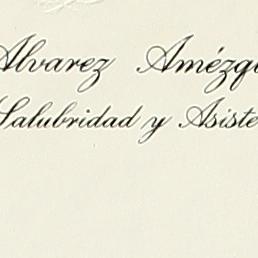 Alvarez Amézqu
Salubridad y Asiste